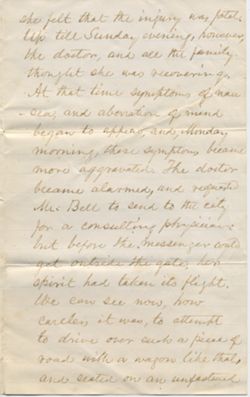 she felt that the injury was fatal.
Up till Sunday evening, however,
the doctor, and all the family
thought she was recovering.
At that time symptoms of nau-
sea, and aberation of mind
began to appear, and, Monday
morning, these symptoms became
more aggravated. The doctor
became alarmed, and requested
Mr. Bell to send to the city
for a consulting physician:
but before the messenger could
get outside the gate, her
spirit had taken its flight.
We can see now, how
careless it was, to attempt
to drive over such a piece of
road with a wagon like that,
and seated on an unfastened